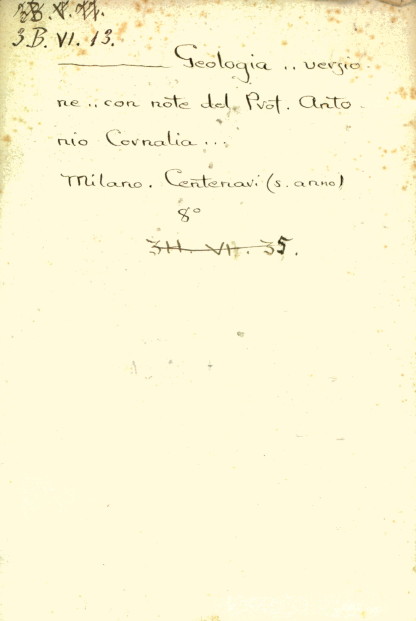 3.B. VI. 13.
Geologia .. versio
ne .. con note del Prof. Anto
nio Cornalia ...
Milano. Centenari (s. anno)
8°
3H. VI. 35.